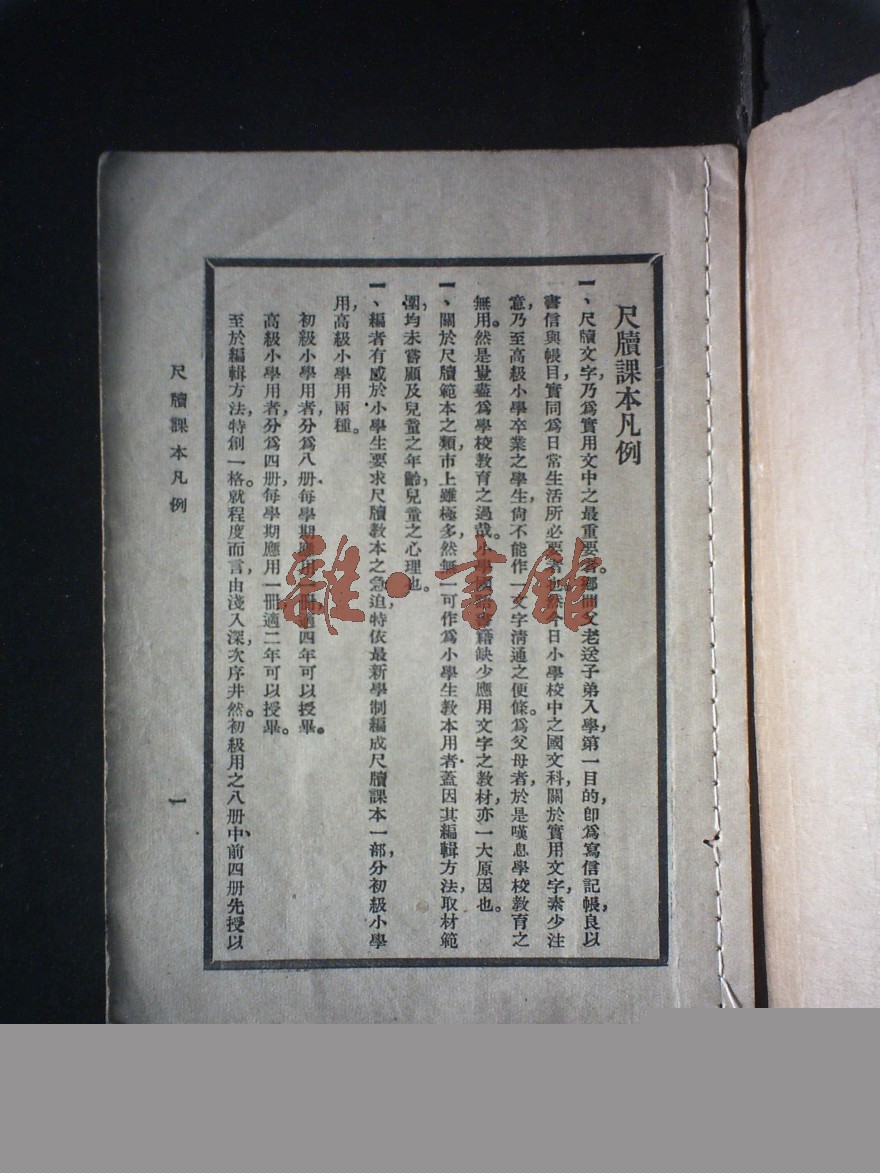 尺牘課本凡例
一、尺牘文字，乃爲實用文中之最重要者。鄉間父老送子弟入學，第一目的，卽爲寫信記帳，良以
書信與帳目，實同爲日常生活所必要者也。然今日小學校中之國文科，關於實用文字，素少注
意，乃至高級小學卒業之學生，尙不能作一文字淸通之便條。爲父母者，於是嘆息學校敎育之
無用。然是豈盡爲學校敎育之過哉。小學國語書籍缺少應用文字之敎材，亦一大原因也。
一、關於尺牘範本之類，市上雖極多，然無一可作爲小學生敎本用者，蓋因其編輯方法，取材範
圍，均未嘗顧及兒童之年齡，兒童之心理也。
一、編者有感於小學生要求尺牘敎本之急迫，特依最新學制編成尺牘課本一部，分初級小學
用，高級小學用兩種。
初級小學用者，分爲八册，每學期應用一冊，適四年可以授畢。
高級小學用者，分爲四册，每學期應用一冊，適二年可以授畢。
至於編輯方法，特創一格。就程度而言，由淺入深，次序井然。初級用之八册中，前四册先授以
尺牘課本凡例
一
雜·書館